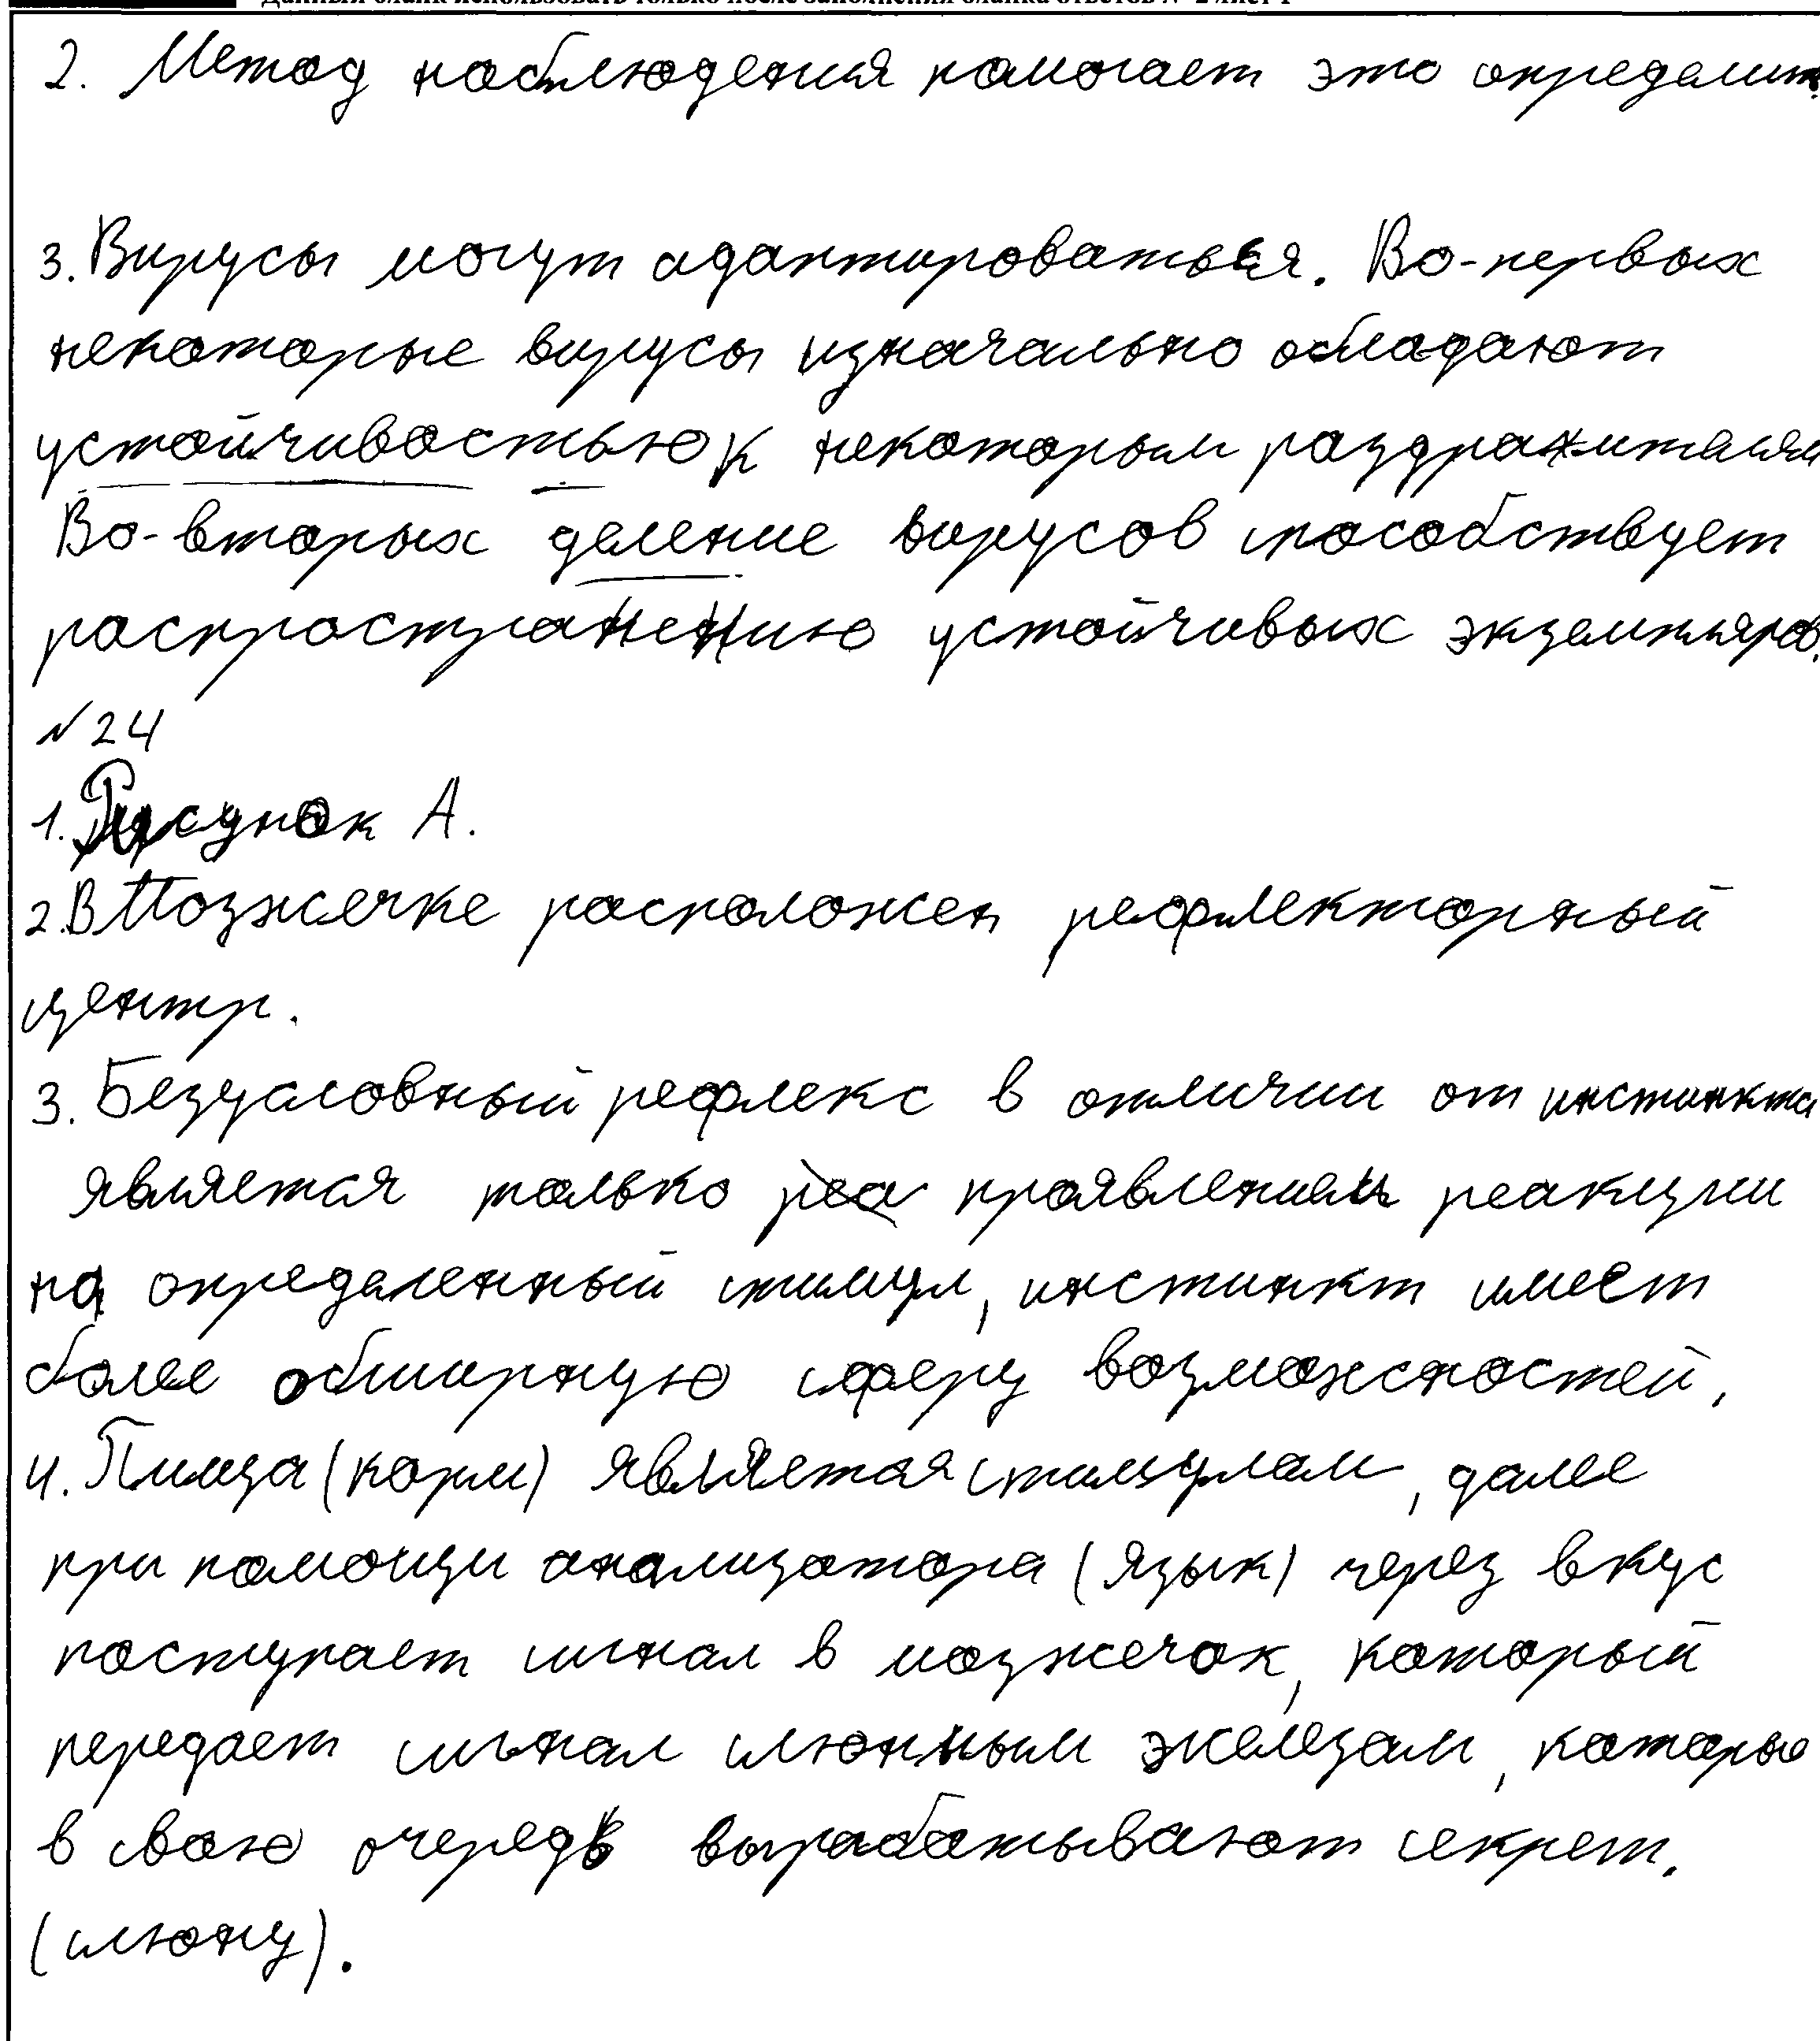 Данный бланк использовать только после заполнения бланка ответов № 2 лист 1
2. Метод наблюдения помогает это определить.
3. Вирусы могут адаптироваться. Во-первых
некоторые вирусы изначально обладают
устойчивостью к некоторым раздражителям
Во-вторых деление вирусов способствует
распространению устойчивых экземпляров.
№24
1. Рисунок А.
2. В Мозжечке расположен рефлекторный
центр.
3. Безусловный рефлекс в отличии от инстинкта
является только реа проявлением реакции
на определенный стимул, инстинкт имеет
более обширную сферу возможностей.
4. Пища (корм) является стимулом, далее
при помощи анализатора (язык) через вкус
поступает сигнал в мозжечок, который
передает сигнал слюнным железам, которые
в свою очередь вырабатывают секрет.
(слюну).